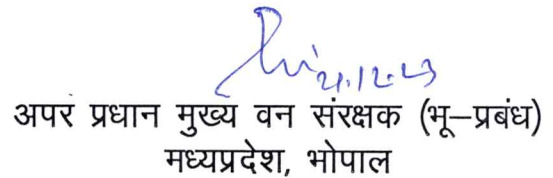 21.12.23
अपर प्रधान मुख्य वन संरक्षक (भू–प्रबंध)
मध्यप्रदेश, भोपाल